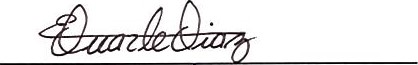 EDuarte Diaz